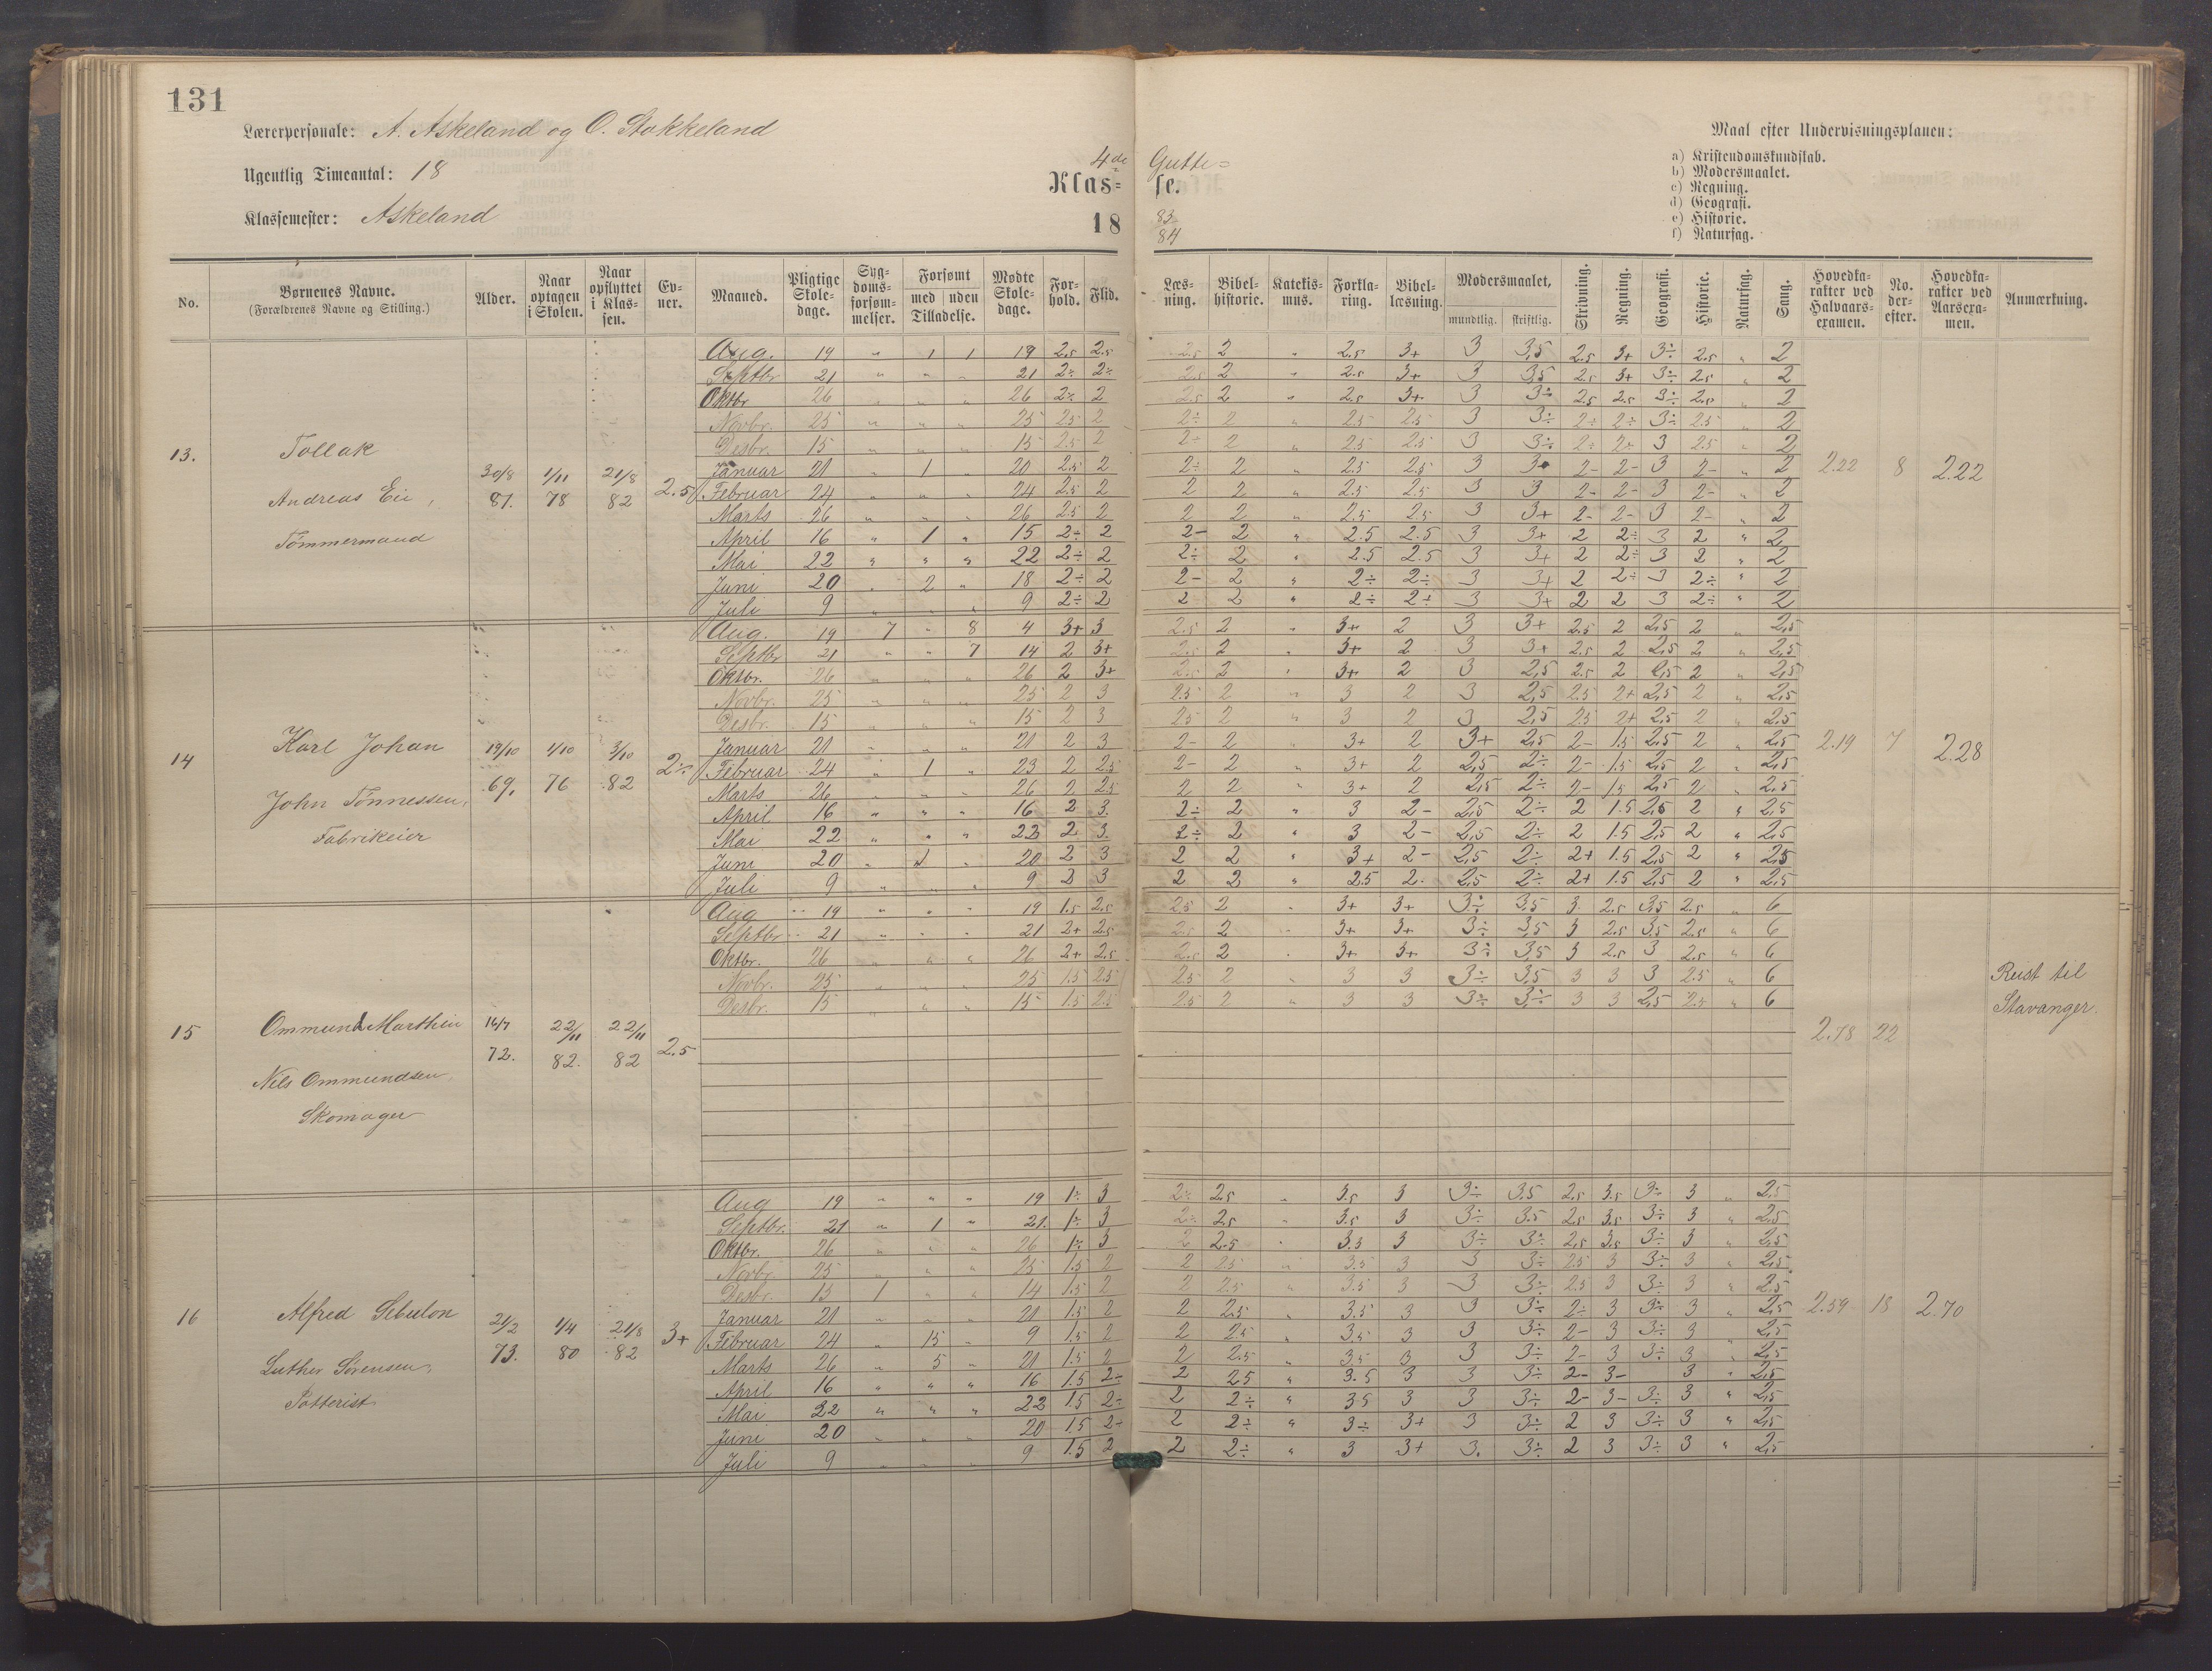 131
Lærerpersonale: A. Askeland og O. Stokkeland
Ugentlig Timeantal: 18
Klassemester: Askeland
4de Gutte=
Klas= se.
18 83/84
Maal efter Undervisningsplanen:
a) Kristendomskundskab.
b) Modersmaalet.
c) Regning.
d) Geografi.
e) Historie.
f) Naturfag.
No. | Børnenes Navne. (Forældrenes Navne og Stilling.) | Alder. | Naar optagen i Skolen. | Naar opflyttet i Klassen. | Evner. | Maaned. | Pligtige Skoledage. | Sygdomsforsømmelser. | Forsømt med uden Tilladelse. | Mødte Skoledage. | Forhold. | Flid. | Læsning. | Bibelhistorie. | Katekismus. | Forklaring. | Bibellæsning. | Modersmaalet, mundtlig. skriftlig. | Skrivning. | Regning. | Geografi. | Historie. | Naturfag. | Sang. | Hovedkarakter ved Halvaarsexamen. | No. derefter. | Hovedkarakter ved Aarsexamen. | Anmærkning.
13. Tollak
Andreas Eie,
Tømmermand
30/8 1/11 21/8 2.5
78 82
2.22 8 2.22
Aug. 19 " 1 1 19 2.5 2.5 2.5 2 " 2.5 3+ 3 3,5 2.5 3+ 3÷ 2.5 " 2
Septbr 21 " " " 21 2÷ 2÷ 2.5 2 " 2.5 3+ 3 3,5 2.5 3+ 3÷ 2.5 " 2
Oktbr 26 " " " 26 2÷ 2 2.5 2 " 2.5 3+ 3 3÷ 2.5 2.5 3÷ 2.5 " 2
Novbr. 25 " " " 25 2.5 2 2÷ 2 " 2.5 2.5 3 3÷ 2÷ 2÷ 3÷ 2.5 " 2
Desbr. 15 " " " 15 2.5 2 2÷ 2 " 2.5 2.5 3 3÷ 2÷ 2÷ 3 2.5 " 2
Januar 21 " 1 " 20 2.5 2 2÷ 2 " 2.5 2.5 3 3 2- 2- 3 2- " 2
Februar 24 " " " 24 2.5 2 2 2 " 2.5 2.5 3 3 2- 2- 3 2- " 2
Marts 26 " " " 26 2.5 2 2 2 " 2.5 2.5 3 3+ 2- 2- 3 2- " 2
April 16 " 1 " 15 2÷ 2 2- 2 " 2.5 2.5 3 3+ 2 2÷ 3 2 " 2
Mai 22 " " " 22 2÷ 2 2÷ 2 " 2.5 2.5 3 3+ 2 2÷ 3 2 " 2
Juni 20 " 2 " 18 2÷ 2 2- 2 " 2÷ 2÷ 3 3+ 2 2÷ 3 2÷ " 2
Juli 9 " " " 9 2÷ 2 2 2 " 2÷ 2+ 3 3+ 2 2 3 2÷ " 2
14 Karl Johan
John Tønnessen,
Fabrikeier
19/10 1/10 3/10 2÷
69. 76 82
2.19 7 2.28
Aug. 19 7 " 8 4 3+ 3 2.5 2 " 3+ 2 3 3+ 2.5 2 2,5 2 " 2,5
Septbr 21 " " 7 14 2 3+ 2.5 2 " 3+ 2 3 3+ 2.5 2 2,5 2 " 2,5
Oktbr. 26 " " " 26 2 3+ 2.5 2 " 3+ 2 3 2,5 2.5 2 2,5 2 " 2,5
Novbr. 25 " " " 25 2 3 2.5 2 " 3 2 3 2,5 2.5 2+ 2,5 2 " 2,5
Desbr. 15 " " " 15 2 3 2.5 2 " 3 2 3 2,5 2.5 2+ 2,5 2 " 2,5
Januar 21 " " " 21 2 3 2- 2 " 3+ 2 3+ 2,5 2- 1.5 2,5 2 " 2,5
Februar 24 " 1 " 23 2 2.5 2- 2 " 3+ 2 2,5 2÷ 2- 1.5 2,5 2 " 2,5
Marts 26 " " " 26 2 2.5 2 2 " 3+ 2 2,5 2÷ 2- 1.5 2,5 2 " 2,5
April 16 " " " 16 2 3. 2÷ 2 " 3 2- 2,5 2÷ 2 1.5 2,5 2 " 2,5
Mai 22 " " " 22 2 3. 2÷ 2 " 3 2- 2,5 2÷ 2 1.5 2,5 2 " 2,5
Juni 20 " " 20 2 3 2 2 " 3+ 2- 2,5 2÷ 2+ 1.5 2,5 2 " 2,5
Juli 9 " " " 9 2 3 2 2 " 2.5 2. 2,5 2÷ 2+ 1.5 2,5 2 " 2,5
15 Ommund Marthin
Nils Ommundsen,
Skomager
16/7 22/11 22/11 2.5
72. 82. 82
2.78 22
Reist til
Stavanger.
Aug 19 " " " 19 1.5 2.5 2.5 2 " 3+ 3+ 3÷ 3,5 3 2.5 3,5 2.5 " 6
Septbr 21 " " " 21 2+ 2.5 2.5 2 " 3+ 3+ 3÷ 3,5 3 2.5 3,5 2.5 " 6
Oktbr. 26 " " " 26 2+ 2.5 2.5 2 " 3+ 3+ 3÷ 3,5 3 2.5 3 2.5 " 6
Novbr. 25 " " " 25 1.5 2.5 2.5 2 " 3 3 3÷ 3,5 3 3 3 2.5 " 6
Desbr. 15 " " " 15 1.5 2.5 2.5 2 " 3 3 3÷ 3÷ 3 3 2,5 2.5 " 6
16 Alfred Sebulon
Luther Sørensen,
21/2 1/4 21/8 3+
73. 80 82
2.59 18 2.70
Aug 19 " " " 19 1÷ 3 2÷ 2.5 " 3.5 3 3÷ 3.5 2.5 3.5 3÷ 3 " 2,5
Septbr. 21 " 1 " 21. 1÷ 3 2÷ 2.5 " 3.5 3 3÷ 3.5 2.5 3.5 3÷ 3 " 2,5
Oktbr. 26 " " " 26 1÷ 3 2 2.5 " 3.5 3 3÷ 3÷ 2.5 3.5 3÷ 3 " 2,5
Novbr. 25 " " " 25 1.5 2 2 2.5 " 3.5 3 3 3÷ 2.5 3 3÷ 3 " 2,5
Desbr. 15 1 " " 14 1.5 2 2 2.5 " 3.5 3 3 3÷ 2.5 3 3÷ 3 " 2,5
Januar 21 " " " 21 1.5 2 2 2.5 " 3.5 3 3 3÷ 2÷ 3 3÷ 3 " 2,5
Februar 24 " 15 " 9 1.5 2 2 2.5 " 3.5 3 3 3÷ 2- 3 3÷ 3 " 2,5
Marts 26 " 5 " 21 1.5 2 2 2.5 " 3.5 3 3 3÷ 2- 3 3÷ 3 " 2,5
April 16 " " " 16 1.5 2- 2 2.5 " 3.5 3 3 3÷ 2- 3- 3 " 2,5
Mai 22 " " " 22 1.5 2÷ 2 2÷ " 3.5 3 3 3÷ 2- 3- 3÷ 3 " 2,5
Juni 20 " " " 20 1.5 2÷ 2 2÷ " 3÷ 3+ 3 3÷ 2 3 3÷ 3 " 2,5
Juli 9 " " " 9 1.5 2 2 2÷ " 3 3+ 3. 3÷ 2 3 3÷ 3 " 2,5